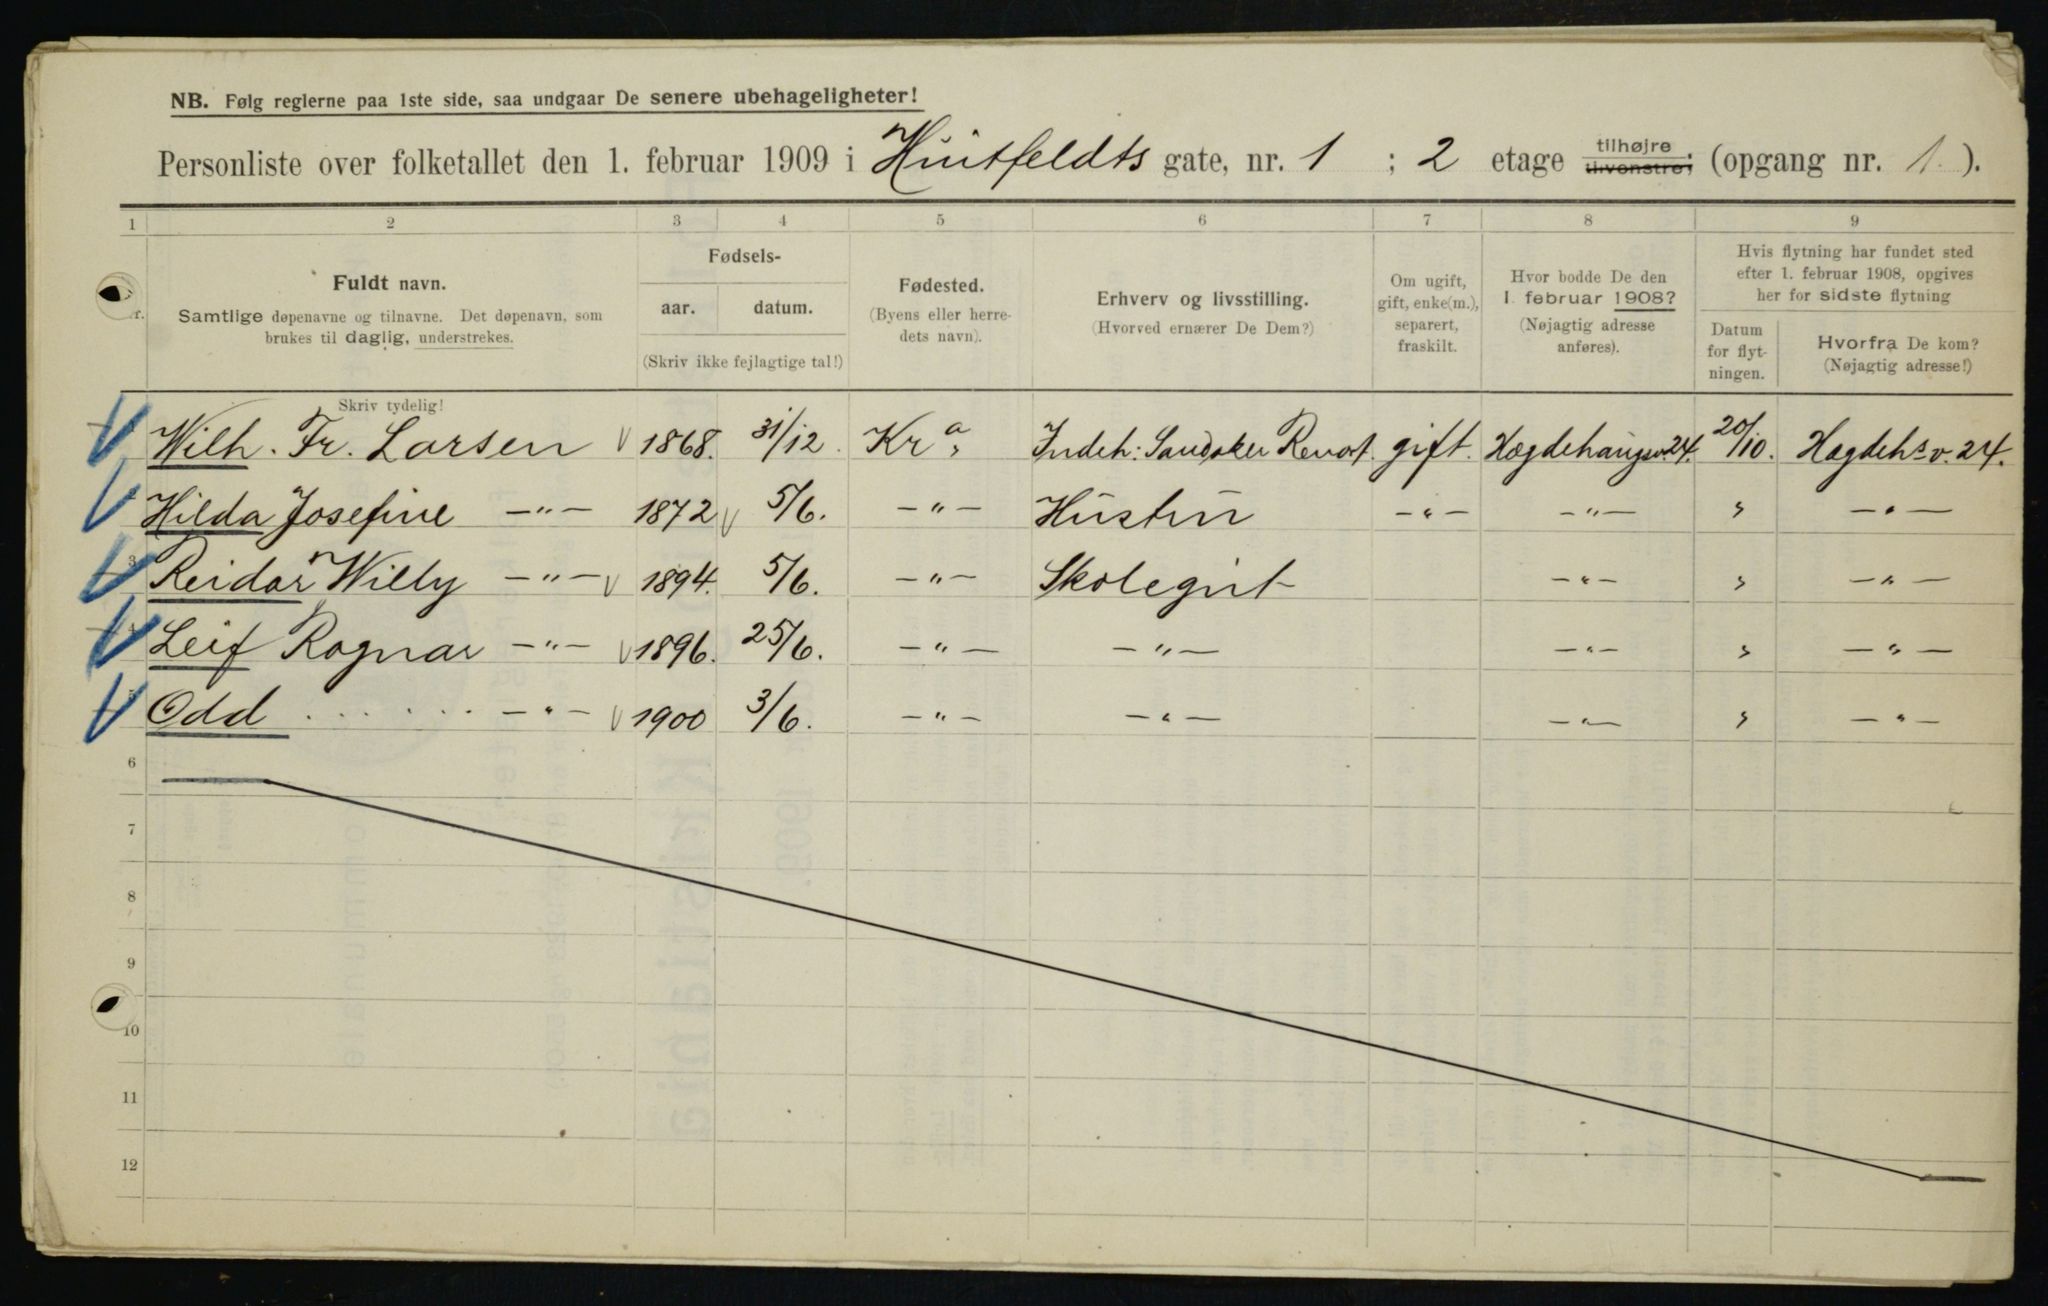 NB. Følg reglerne paa 1ste side, saa undgaar De senere ubehageligheter!
Personliste over folketallet den 1. februar 1909 i Huitfeldts gate, nr. 1 ; 2 etage tilhøjre tilvenstre; (opgang nr. 1.).
1 2 3 4 5 6 7 8 9
Fuldt navn.
Samtlige døpenavne og tilnavne. Det døpenavn, som
brukes til daglig, understrekes.
Skriv tydelig!
Fødsels-
aar. datum.
(Skriv ikke fejlagtige tal!)
Fødested.
(Byens eller herre-
dets navn).
Erhverv og livsstilling.
(Hvorved ernærer De Dem?)
Om ugift,
gift, enke(m.),
separert,
fraskilt.
Hvor bodde De den
1. februar 1908?
(Nøjagtig adresse
anføres).
Hvis flytning har fundet sted
efter 1. februar 1908, opgives
her for sidste flytning
Datum
for flyt-
ningen.
Hvorfra De kom?
(Nøjagtig adresse!)
Wilh. Fr. Larsen 1868. 31/12. Kra, Indeh: Sandaker Renost. gift. Hægdehaugsv. 24. 20/10. Hægdehs v. 24.
Hilda Josefine —"— 1872 5/6. —"— Hustru —"— —"— " —"—
3 Reidar Willy —"— 1894. 5/6. —"— Skolegut —"— " —"—
Leif Ragnar —"— 1896. 25/6. —"— —"— —"— " —"—
5 Odd . . . . . . —"— 1900 3/6. —"— —"— —"— " —"—
6
7
8
9
10
11
12